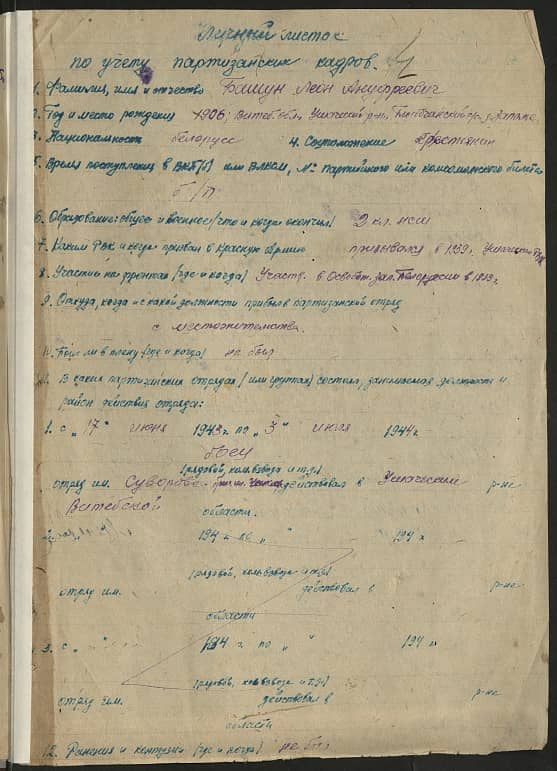 Личный листок
по учету партизанских кадров.
1. Фамилия, имя и отчество Башун Леон Ануфреевич
2. Год и место рождения 1906, Витеб. обл, Ушачский р-он,
3. Национальность белорусс 4. Соцположение Крестьянин
5. Время поступления в ВКП/б/ или ВЛКСМ, № партийного или комсомольского билета
б/п
6. Образование: общее и военное /что и когда окончил/ 2 кл. нсш
7. Каким РВК и когда призван в Красную Армию призывался в 1939г. Ушачским РВК
8. Участие на фронтах /где и когда/ Участв. в Освобот. зап. Белоруссии в 1939г.
9. Откуда, когда и с какой должности прибыл в партизанский отряд
с местожительства.
10. Был ли в плену /где и когда/ не был
11. В каких партизанских отрядах / или группах/ состоял, занимаемая должность и
район действия отряда:
1. с „17“ июня 1943г. по „3“ июля 1944г.
боец
/рядовой, ком. взвода и т.д/
отряд им. Суворова действовал в Ушачский р-не
Витебской области.
194 г. по „ “ 194 г
/рядовой, ком. взвода и т.д/
отряд им. действовал в р-не
области
3. с „ “ 194 г. по „ “ 194 г
/рядовой, ком. взвода и т.д/
отряд им. действовал в р-не
области
12. Ранения и контузии /где и когда/ не был